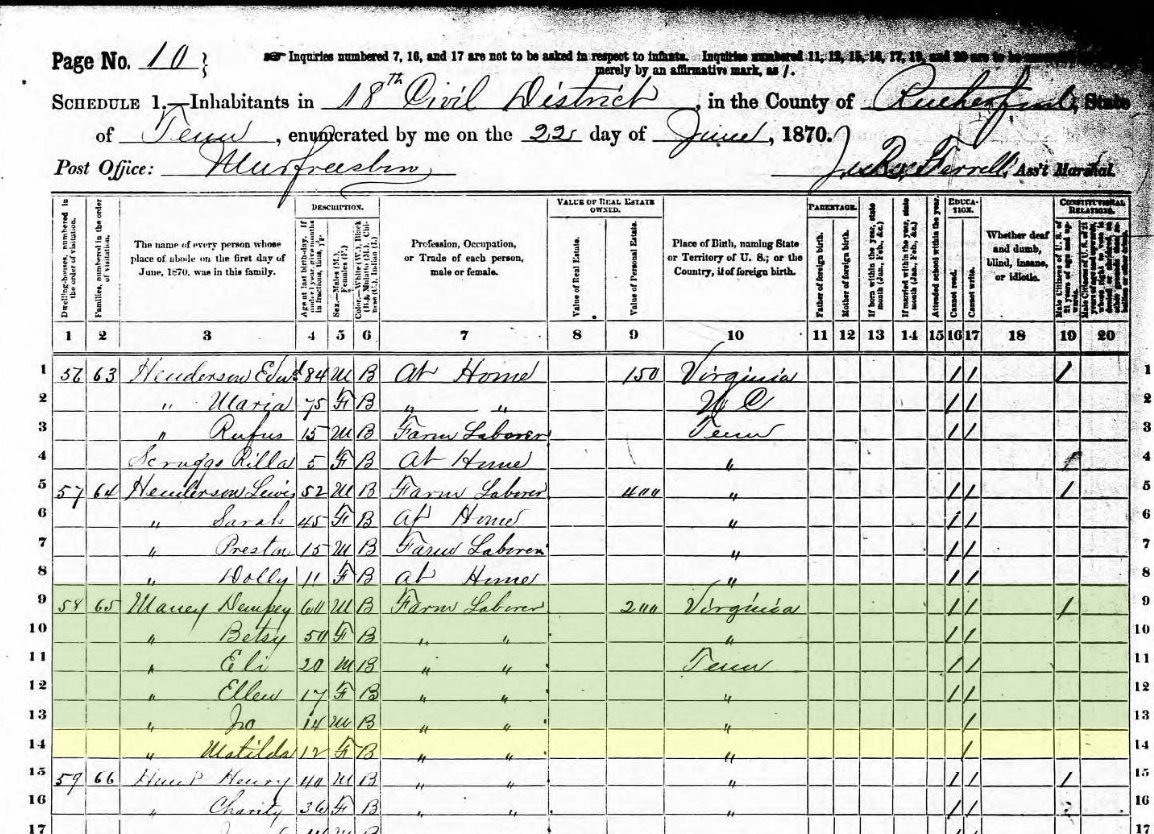 Page No. 10
☞ Inquiries numbered 7, 16, and 17 are not to be asked in respect to infants. Inquiries numbered 11, 12, 15, 16, 17, 19, and 20 are to be
merely by an affirmative mark, as /.
SCHEDULE 1.—Inhabitants in 18th Civil District, in the County of Rutherford, State
of Tenn, enumerated by me on the 22 day of June, 1870.
Post Office: Murfreesboro Ferrell, Ass't Marshal.
DESCRIPTION. VALUE OF REAL ESTATE OWNED. PARENTAGE. EDUCATION. CONSTITUTIONAL RELATIONS.
Dwelling-houses, numbered in the order of visitation.
Families, numbered in the order of visitation.
The name of every person whose place of abode on the first day of June, 1870, was in this family.
Age at last birth-day. If under 1 year, give months in fractions, thus,
Sex.—Males (M.), Females (F.)
Color.—White (W.), Black (B.), Mulatto (M.), Chinese (C.), Indian (I.)
Profession, Occupation, or Trade of each person, male or female.
Value of Real Estate.
Value of Personal Estate.
Place of Birth, naming State or Territory of U. S.; or the Country, if of foreign birth.
Father of foreign birth.
Mother of foreign birth.
If born within the year, state month (Jan., Feb., &c.)
If married within the year, state month (Jan., Feb., &c.)
Attended school within the year.
Cannot read.
Cannot write.
Whether deaf and dumb, blind, insane, or idiotic.
Male Citizens of U. S. of 21 years of age and upwards.
1 2 3 4 5 6 7 8 9 10 11 12 13 14 15 16 17 18 19 20
1 56 63 Henderson Edwd 84 M B At Home 150 Virginia / / / 1
2 " Maria 75 F B " " N C / / 2
3 " Rufus 15 M B Farm Laborer Tenn / / 3
4 Scruggs Rilla 5 F B At Home " 4
5 57 64 Henderson Lewis 52 M B Farm Laborer 400 " / / / 5
6 " Sarah 45 F B At Home " / / 6
7 " Preston 15 M B Farm Laborer " / / 7
8 " Dolly 11 F B At Home " / / 8
9 58 65 Maney Dempey 60 M B Farm Laborer 200 Virginia / / / 9
10 " Betsy 50 F B " " " / / 10
11 " Eli 20 M B " " Tenn / / 11
12 " Ellen 17 F B " " " / / 12
13 " Jno 14 M B " " " / 13
14 " Matilda 12 F B " " " / 14
15 59 66 Henry 40 M B " " " / / / 15
16 " Charity 36 F B " " " / / 16
17 17